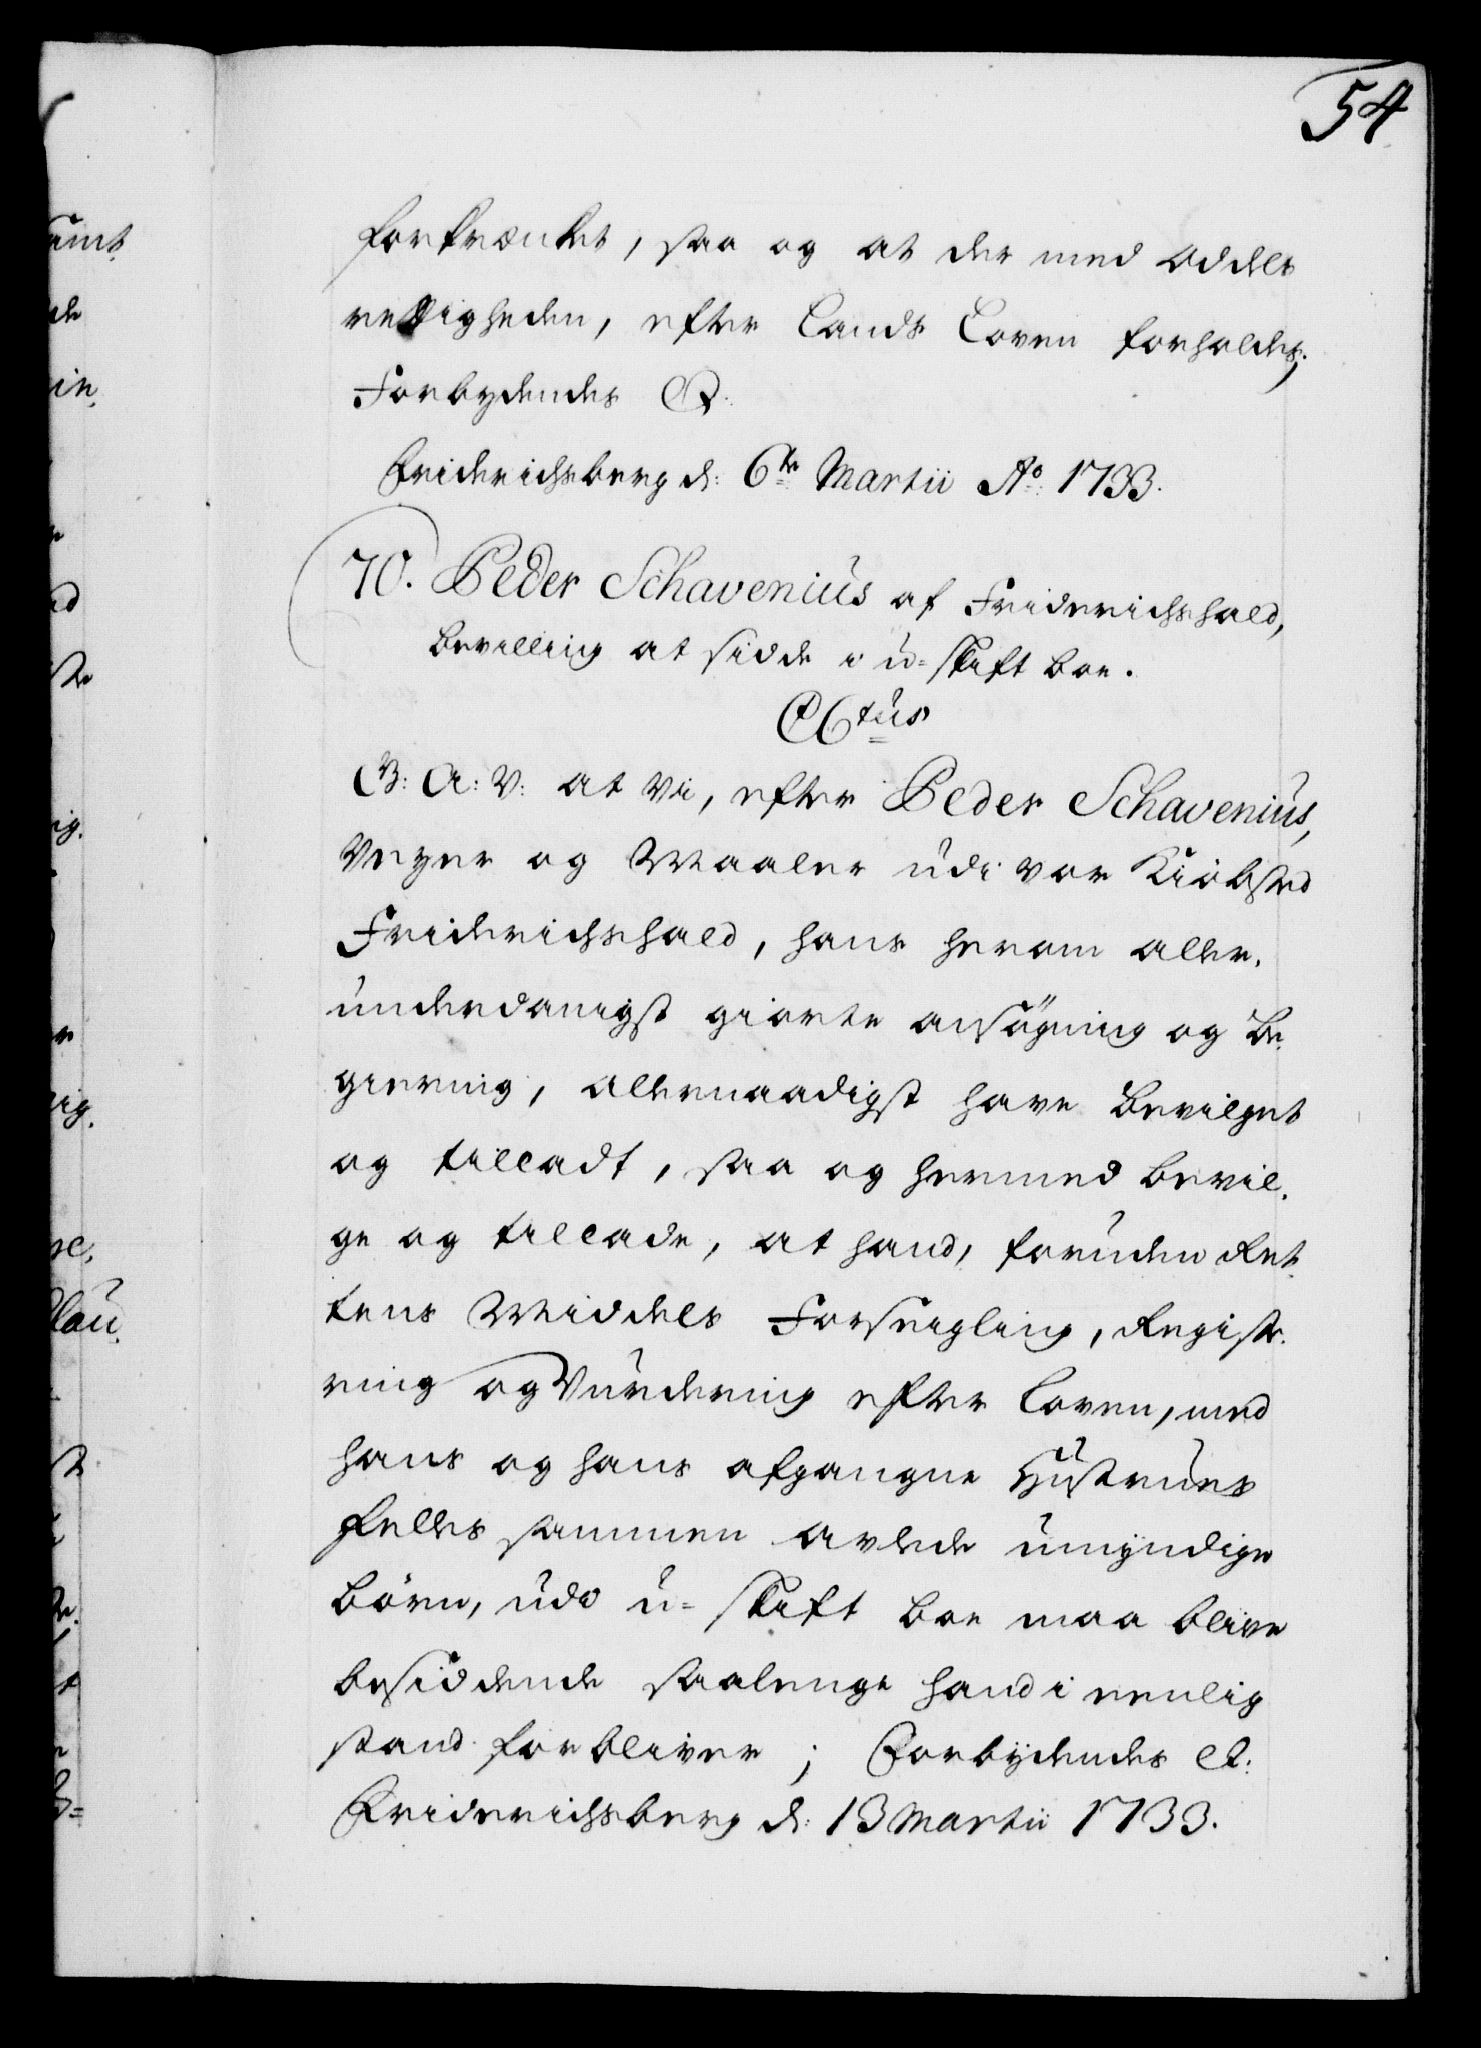 54
forkrænket, saa og at der med Oddels
rettigheden, efter Lands Loven forholdes;
Forbydendes &.
Friderichsberg d: 6te Martii Ao: 1733.
70. Peder Schavenius af Friderichshald,
bevilling at sidde i u-skift boe.
C6tus
G: A: V: at Vi, efter Peder Schavenius,
Veyer og Maaler udi vor Kiöbsted
Friderichshald, hans herom aller-
underdanigst giorte ansögning og Be-
giering, allernaadigst have bevilget
og tilladt, saa og hermed bevil-
ge og tillade, at hand, foruden Ret-
tens Middels Forseigling, Registe-
ring og Vurdering efter Loven, med
hans og hans afgangne Hustrues
felles sammen avlede umyndige
börn, udi u-skift boe maa blive
besiddende saalenge hand i eenlig
stand forbliver; Forbydendes &:
Friderichsberg d: 13 Martii 1733.